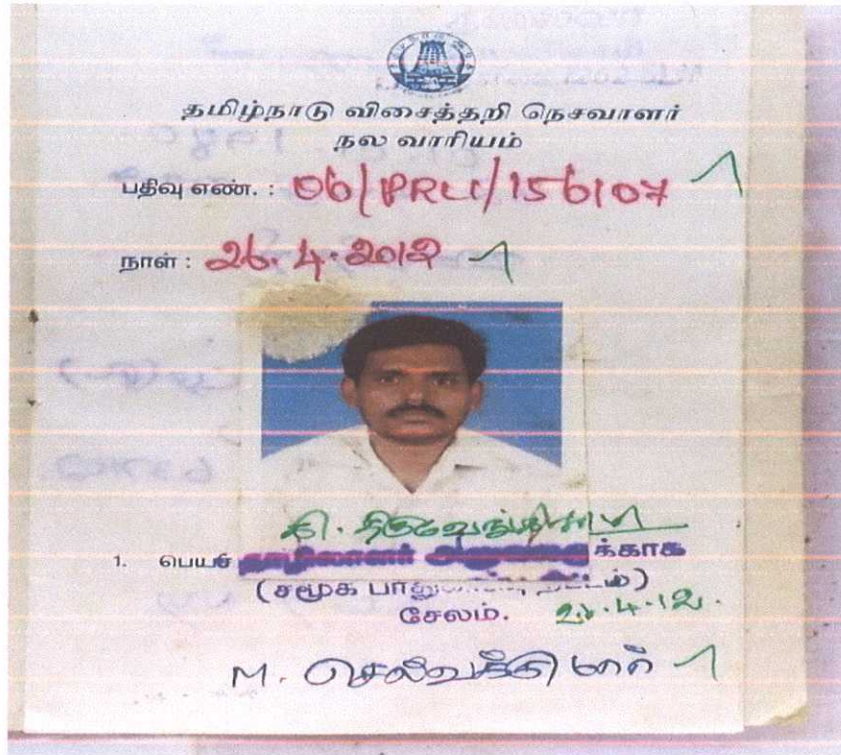 தமிழ்நாடு விசைத்தறி நெசவாளர்
நல வாரியம்
பதிவு எண். : 06/PRLI/156107
நாள் : 26.4.2012
1. பெயர் தொழிலாளர் க்காக
(சமூக பாதுகாப்பு திட்டம்)
சேலம். 26.4.12.
M. செல்வக்குமார்